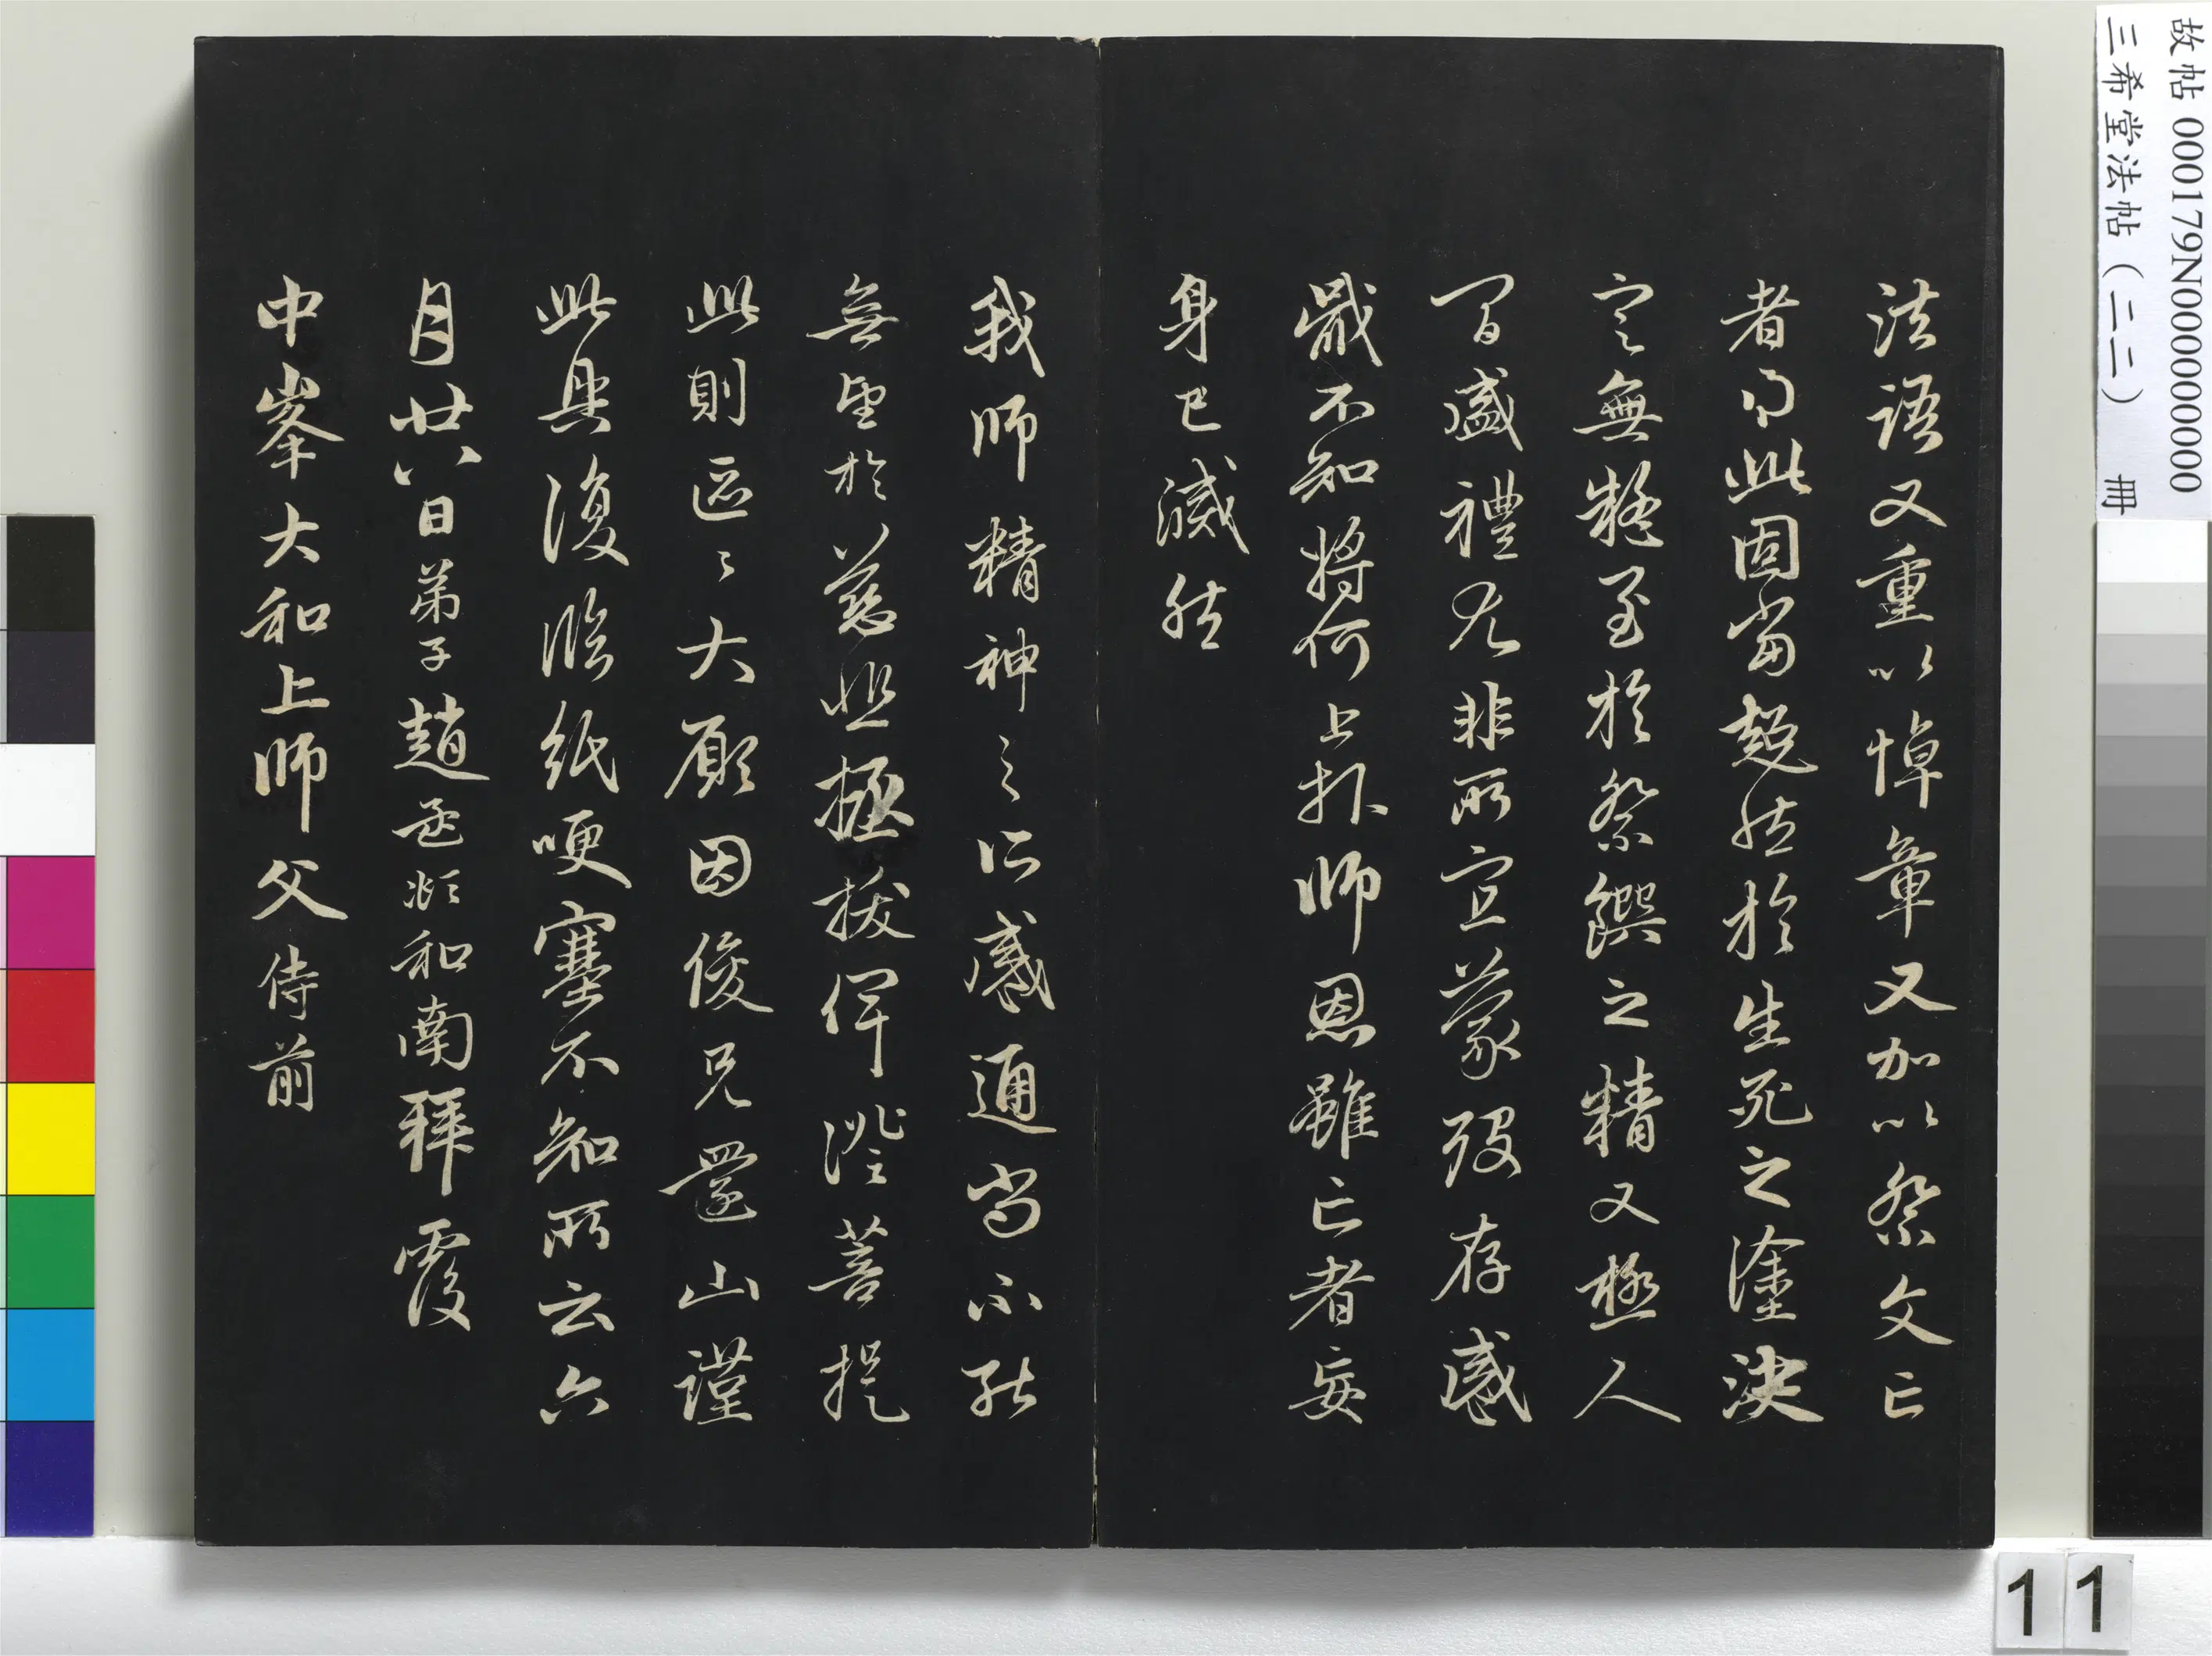 法語又重以悼章又加以祭文亡
者得此固當超然於生死之塗決
定無疑至於祭饌之精又極人
間盛禮尤非所宜蒙歿存感
戴不知將何上報師恩雖亡者妄
身已滅然
我師精神之所感通尚不能
無望於慈悲拯拔俾證菩提
此則區々大願因俊兄還山謹
此具復臨紙哽塞不知所云六
月廿八日弟子趙孟頫和南拜覆
中峯大和上師父侍前
故帖 000179N000000000
三希堂法帖(二二) 冊
11